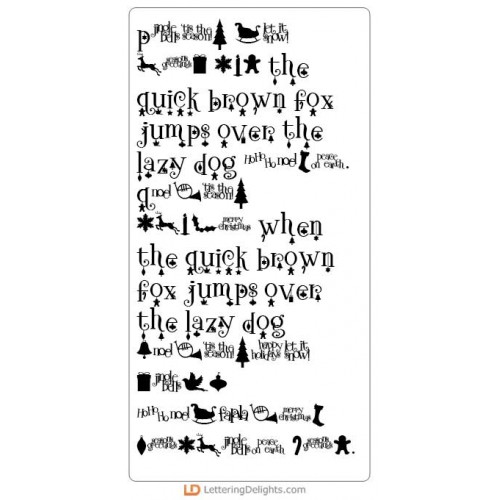 p jingle bells 'tis the season! let it snow!
seasons greetings the
quick brown fox
jumps over the
lazy dog HoHoHo noel peace on earth.
q noel 'tis the season!
merry christmas when
the quick brown
fox jumps over
the lazy dog
noel 'tis the season! happy holidays let it snow!
jingle bells
HoHoHo noel falala merry christmas
seasons greetings jingle bells peace on earth seasons greetings.
LD LetteringDelights.com